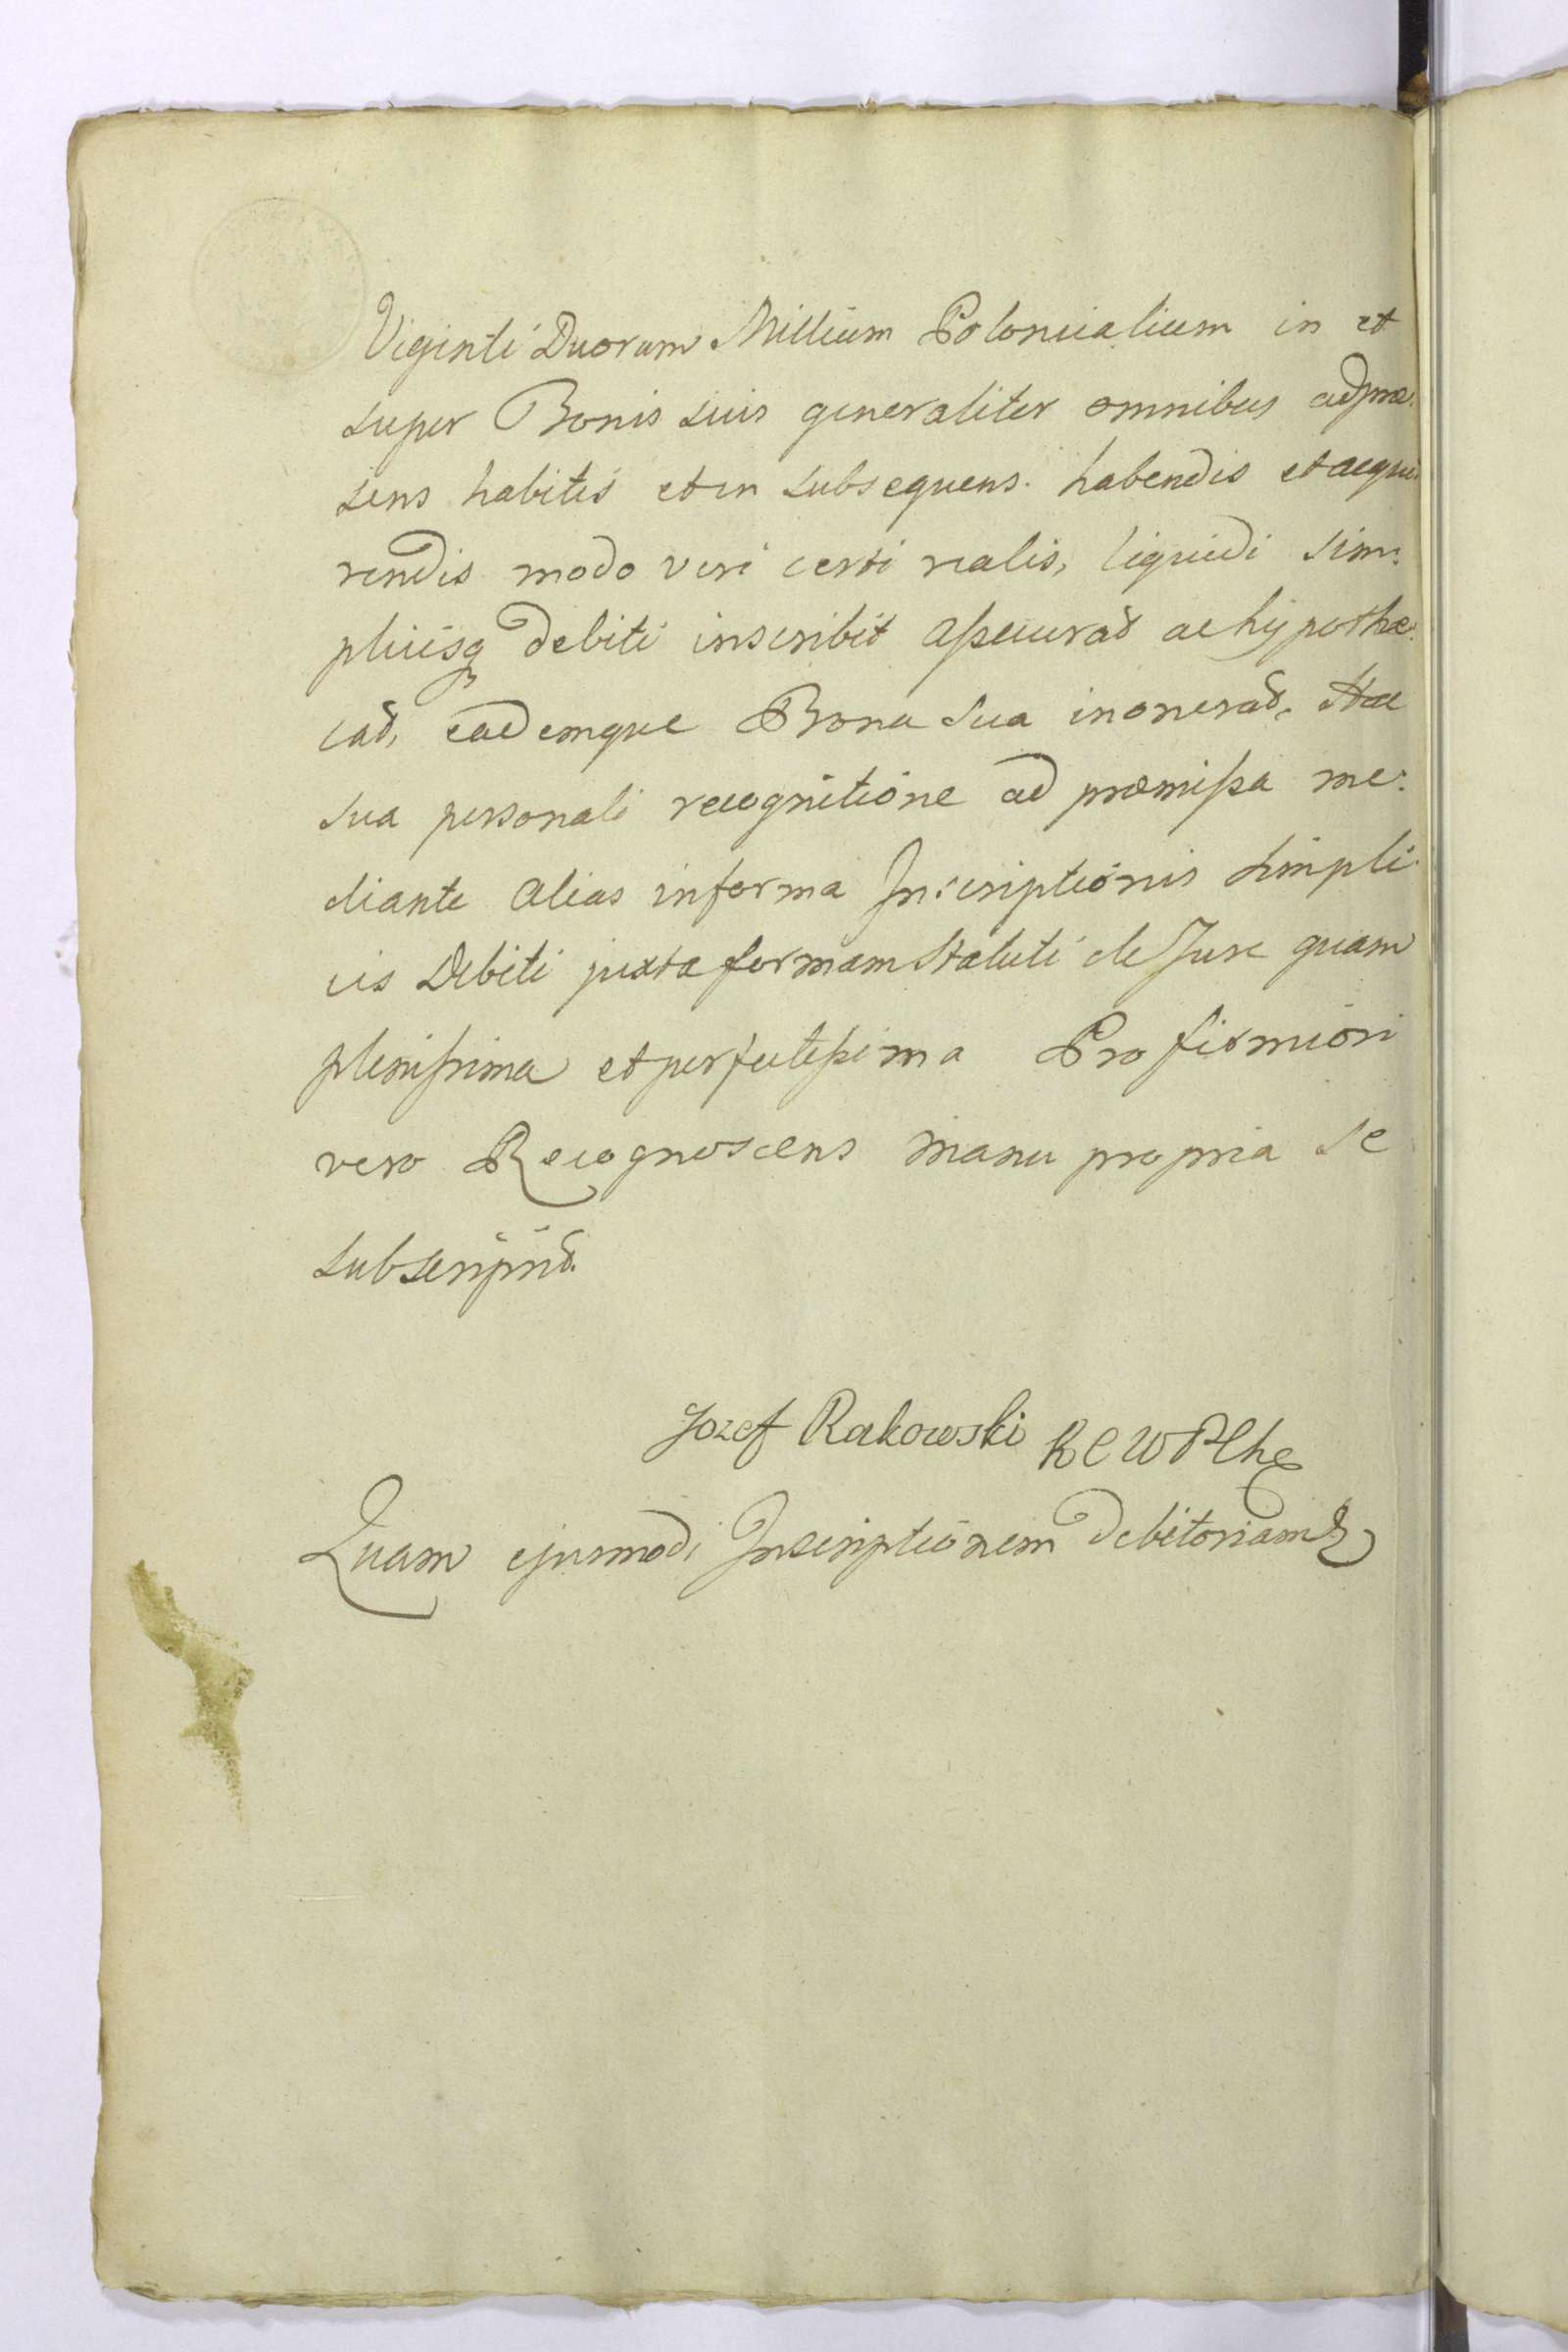 Viginti Duorum Millium Polonicalium in et
super Bonis suis generaliter omnibus ad præ:
sens habitis et in subsequens. habendis et acqui:
rendis modo veri certi realis, liquidi sim:
plicisq debiti inscribit assecurat ac hypothæ:
cat, eademque Bona sua inonerat, Hac
sua personali recognitione ad præmissa me:
diante alias in forma Inscriptionis simpli:
cis Debiti juxta formam Statuti de Jure quam
plenissima et perfectissima Pro firmiori
vero Recognoscens manu propria se
subscripsit.
Jozef Rakowski R C W P Che
Quam ejusmodi Inscriptionem debitoriam